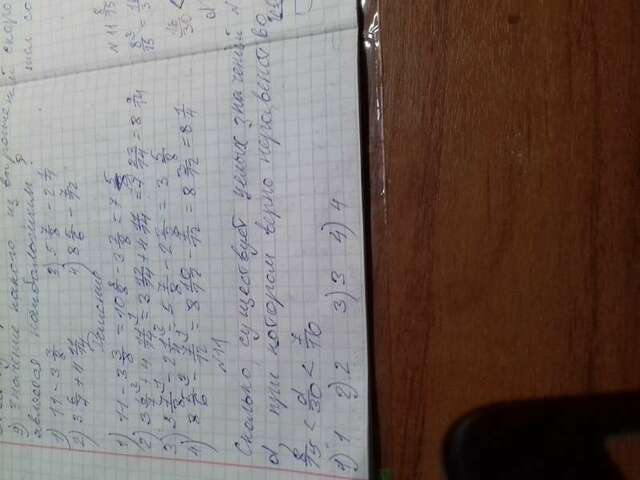 9) Значение какого из выражений скоро
является наибольшим?
1) 11 - 3 3/8 3) 5 7/8 - 2 1/4
2) 3 6/7 + 4 11/14 4) 8 5/6 - 7/12
Решение
1) 11 - 3 3/8 = 10 8/8 - 3 3/8 = 7 5/8
2) 3 6/7 + 4 11/14 = 3 12/14 + 4 11/14 = 7 23/14 = 8 9/14
3) 5 7/8 - 2 1/4 = 5 7/8 - 2 2/8 = 3 5/8
4) 8 5/6 - 7/12 = 8 10/12 - 7/12 = 8 3/12 = 8 1/4
№11
Сколько существует целых значений
d, при котором верно неравенство
8/15 < d/30 < 7/10
1) 1 2) 2 3) 3 4) 4
№11 8/15
16/30 <
d